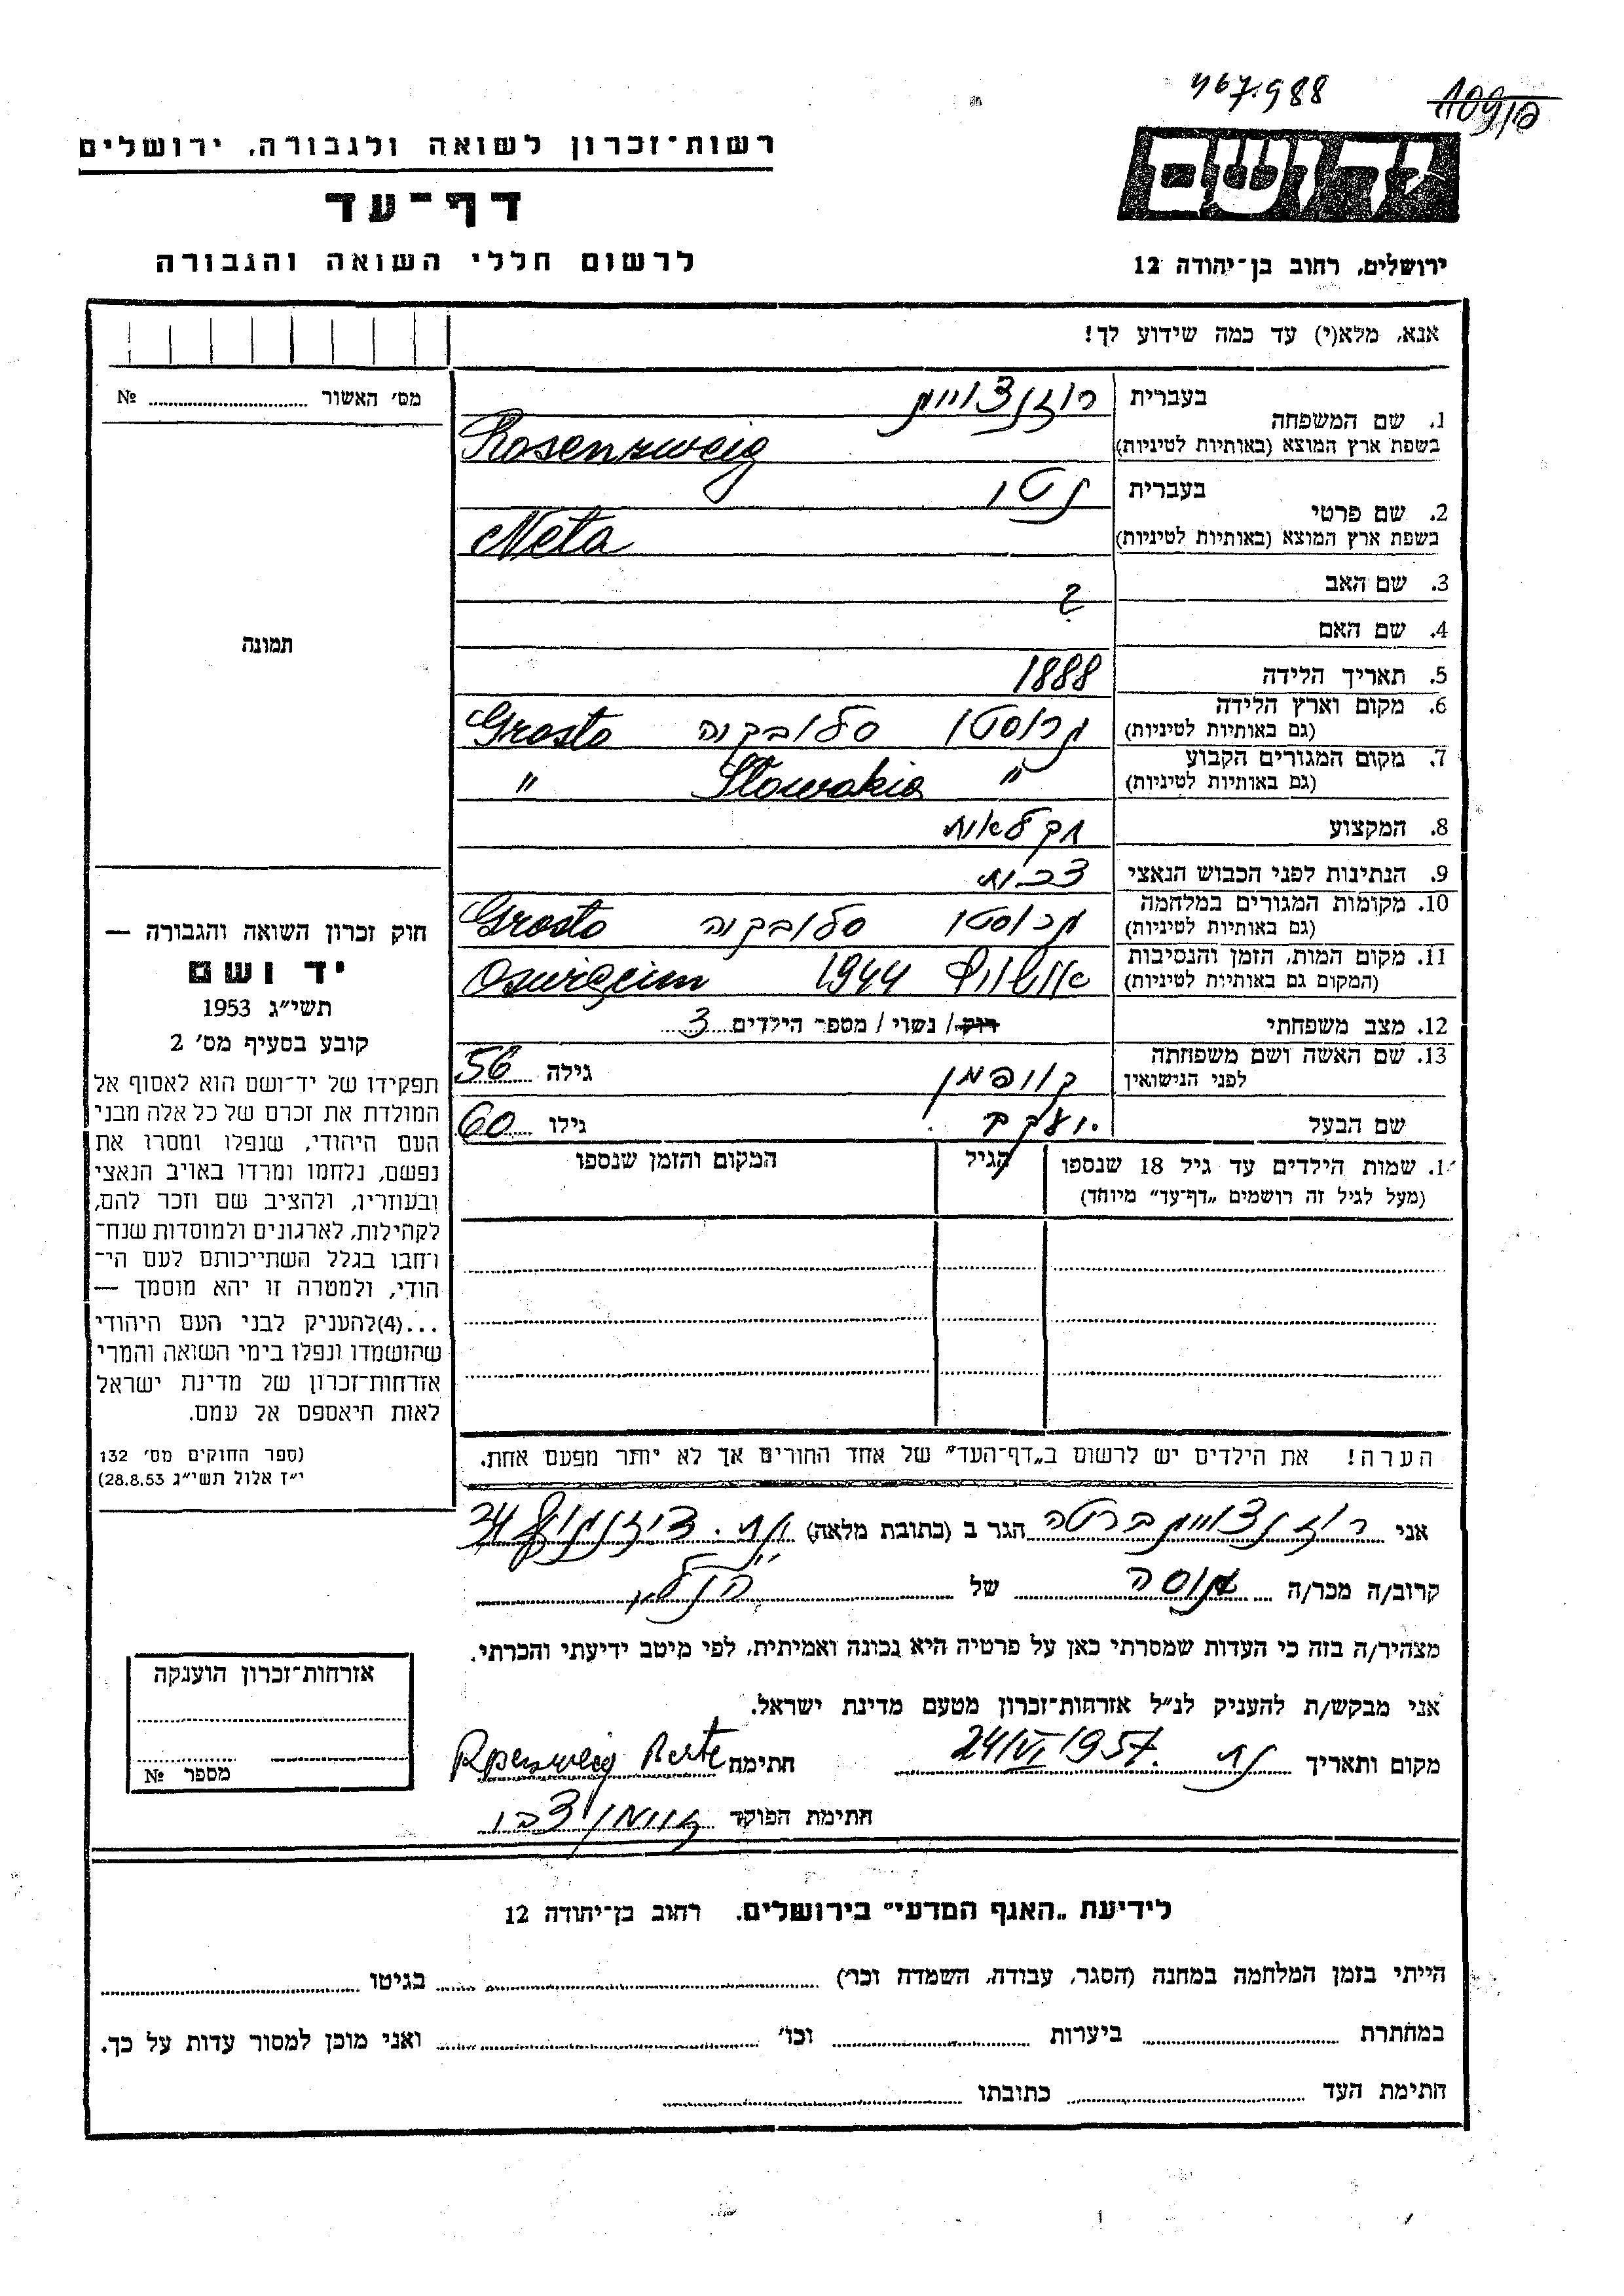 467.988
רשות־זכרון לשואה ולגבורה, ירושלים
דף־עד
לרשום חללי השואה והגבורה
ידושם
ירושלים, רחוב בן־יהודה 12
אנא, מלא(י) עד כמה שידוע לך!
מס׳ האשור № 
תמונה
1. שם המשפחה
בעברית רוזנצוייג
בשפת ארץ המוצא (באותיות לטיניות) Rosenzweig
2. שם פרטי
בעברית נטי
בשפת ארץ המוצא (באותיות לטיניות) Neta
3. שם האב ?
4. שם האם
5. תאריך הלידה 1888
6. מקום וארץ הלידה
(גם באותיות לטיניות) סלובקיה Grosto
7. מקום המגורים הקבוע
(גם באותיות לטיניות) " Slowakia "
8. המקצוע חקלאות
9. הנתינות לפני הכבוש הנאצי
10. מקומות המגורים במלחמה
(גם באותיות לטיניות) סלובקיה Grosto
11. מקום המות, הזמן והנסיבות
(המקום גם באותיות לטיניות) אושוויץ 1944 Oswięcim
12. מצב משפחתי רוק/ נשוי / מספר הילדים 3
13. שם האשה ושם משפחתה
לפני הנישואין קויפמן גילה 56
שם הבעל יעקב גילו 60
1. שמות הילדים עד גיל 18 שנספו
(מעל לגיל זה רושמים „דף־עד״ מיוחד)
הגיל
המקום והזמן שנספו
הערה! את הילדים יש לרשום ב„דף־העד״ של אחד ההורים אך לא יותר מפעם אחת.
חוק זכרון השואה והגבורה —
יד ושם
תשי״ג 1953
קובע בסעיף מס׳ 2
תפקידו של יד־ושם הוא לאסוף אל
המולדת את זכרם של כל אלה מבני
העם היהודי, שנפלו ומסרו את
נפשם, נלחמו ומרדו באויב הנאצי
ובעוזריו, ולהציב שם וזכר להם,
לקהילות, לארגונים ולמוסדות שנח־
רחבו בגלל השתייכותם לעם הי־
הודי, ולמטרה זו יהא מוסמך —
...(4)להעניק לבני העם היהודי
שהושמדו ונפלו בימי השואה והמרי
אזרחות־זכרון של מדינת ישראל
לאות היאספם אל עמם.
(ספר החוקים מס׳ 132
י״ז אלול תשי״ג 28.8.53)
אני רוזנצוייג ברטה הגר ב (כתובת מלאה) דיזנגוף 34
קרוב/ה מכר/ה גיסה של הנ״ל
מצהיר/ה בזה כי העדות שמסרתי כאן על פרטיה היא נכונה ואמיתית, לפי מיטב ידיעתי והכרתי.
אני מבקש/ת להעניק לנ״ל אזרחות־זכרון מטעם מדינת ישראל.
מקום ותאריך 24/VI 1957. חתימה Rosenzweig Berte
חתימת הפוקד
אזרחות־זכרון הוענקה
מספר №
לידיעת „האגף המדעי״ בירושלים, רחוב בן־יהודה 12
הייתי בזמן המלחמה במחנה (הסגר, עבודה, השמדה וכו׳) בגיטו
במחתרת ביערות וכו׳ ואני מוכן למסור עדות על כך.
חתימת העד כתובתו